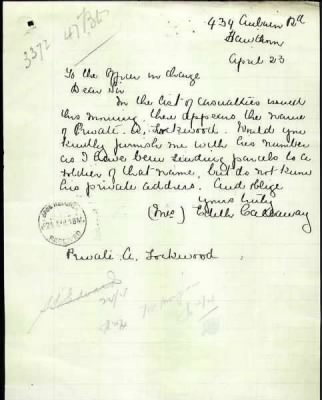 434 Auburn Rd
Hawthorn
April 23
3372
To the Officer in Charge
Dear Sir
In the list of casualties issued
this morning there appears the name
of Private A. Lockwood. Would you
kindly furnish me with his number
as I have been sending parcels to a
soldier of that name, but do not know
his private address. And oblige
Yours truly
(Mrs) Edith Callaway
RECEIVED
Private A. Lockwood